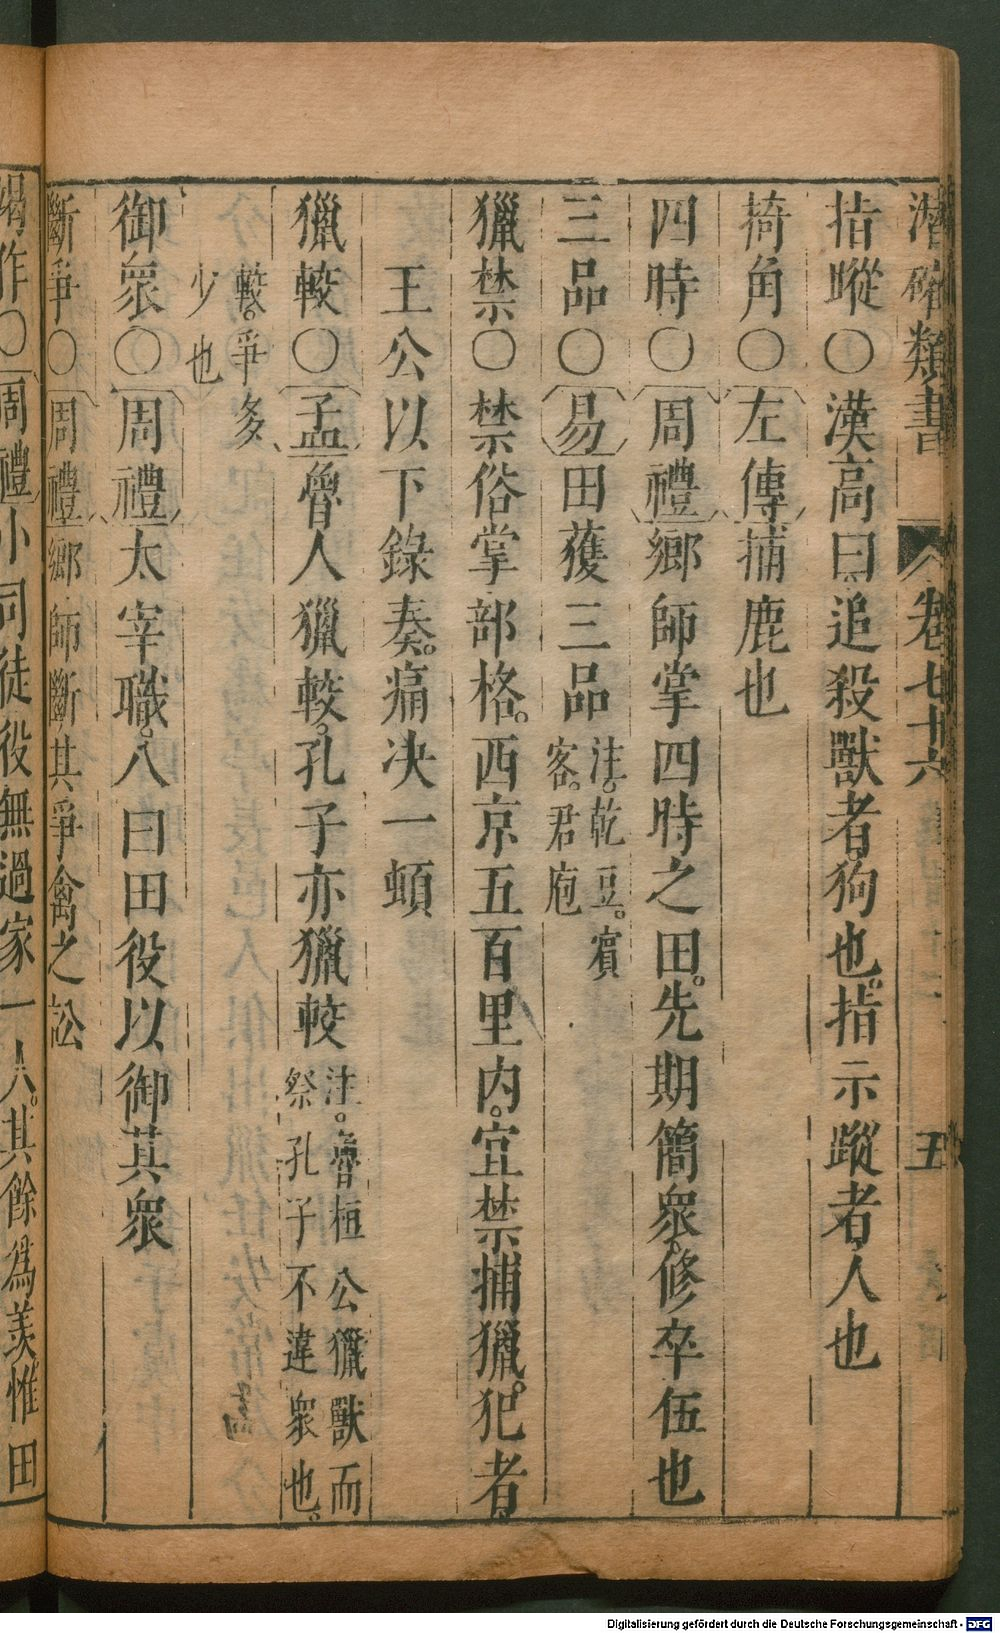 潛確類書 卷七十六 五
指蹤○漢高曰追殺獸者狗也。指示蹤者人也
掎角○左傳捕鹿也
四時○周禮鄉師掌四時之田。先期簡衆。修卒伍也
三品○易田獲三品 注。乾豆。賓客。君庖
獵禁○禁俗掌部格。西京五百里内。宜禁捕獵。犯者。
王公以下錄奏。痛决一頓
獵較○孟魯人獵較。孔子亦獵較 注。魯桓公獵獸而祭孔子不違衆也。
較。爭多少也
御衆○周禮太宰職。八曰田役以御其衆
斷爭○周禮鄉師斷其爭禽之訟
竭作○周禮小司徒役無過家一人。其餘爲羡惟田
Digitalisierung gefördert durch die Deutsche Forschungsgemeinschaft - DFG